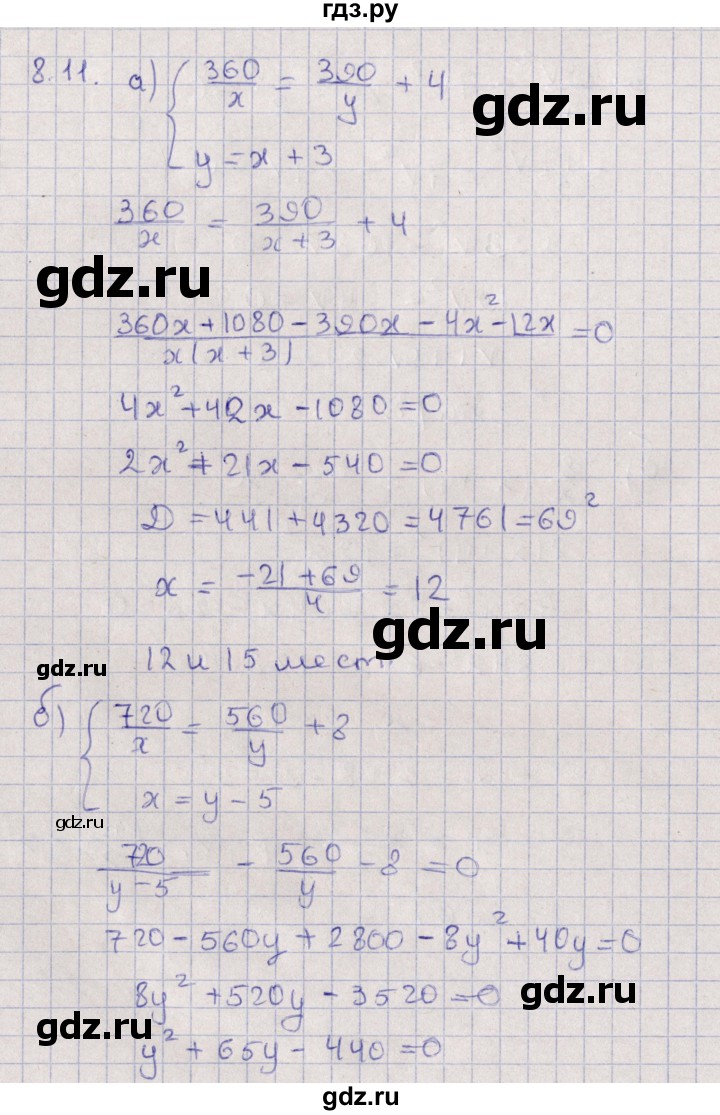 гдз.ру
8.11. а) { 360/x = 390/y + 4
y = x + 3
gdz.ru
360/x = 390/(x + 3) + 4
gdz.ru
(360x + 1080 - 390x - 4x² - 12x)/(x(x + 3)) = 0
4x² + 42x - 1080 = 0
2x² + 21x - 540 = 0
D = 441 + 4320 = 4761 = 69²
x = (-21 + 69)/4 = 12
gdz.ru
gdz.ru
12 и 15 мест
б) { 720/x = 560/y + 8
x = y - 5
gdz.ru
720/(y - 5) - 560/y - 8 = 0
720 - 560y + 2800 - 8y² + 40y = 0
8y² + 520y - 3520 = 0
gdz.ru
gdz.ru
y² + 65y - 440 = 0
gdz.ru